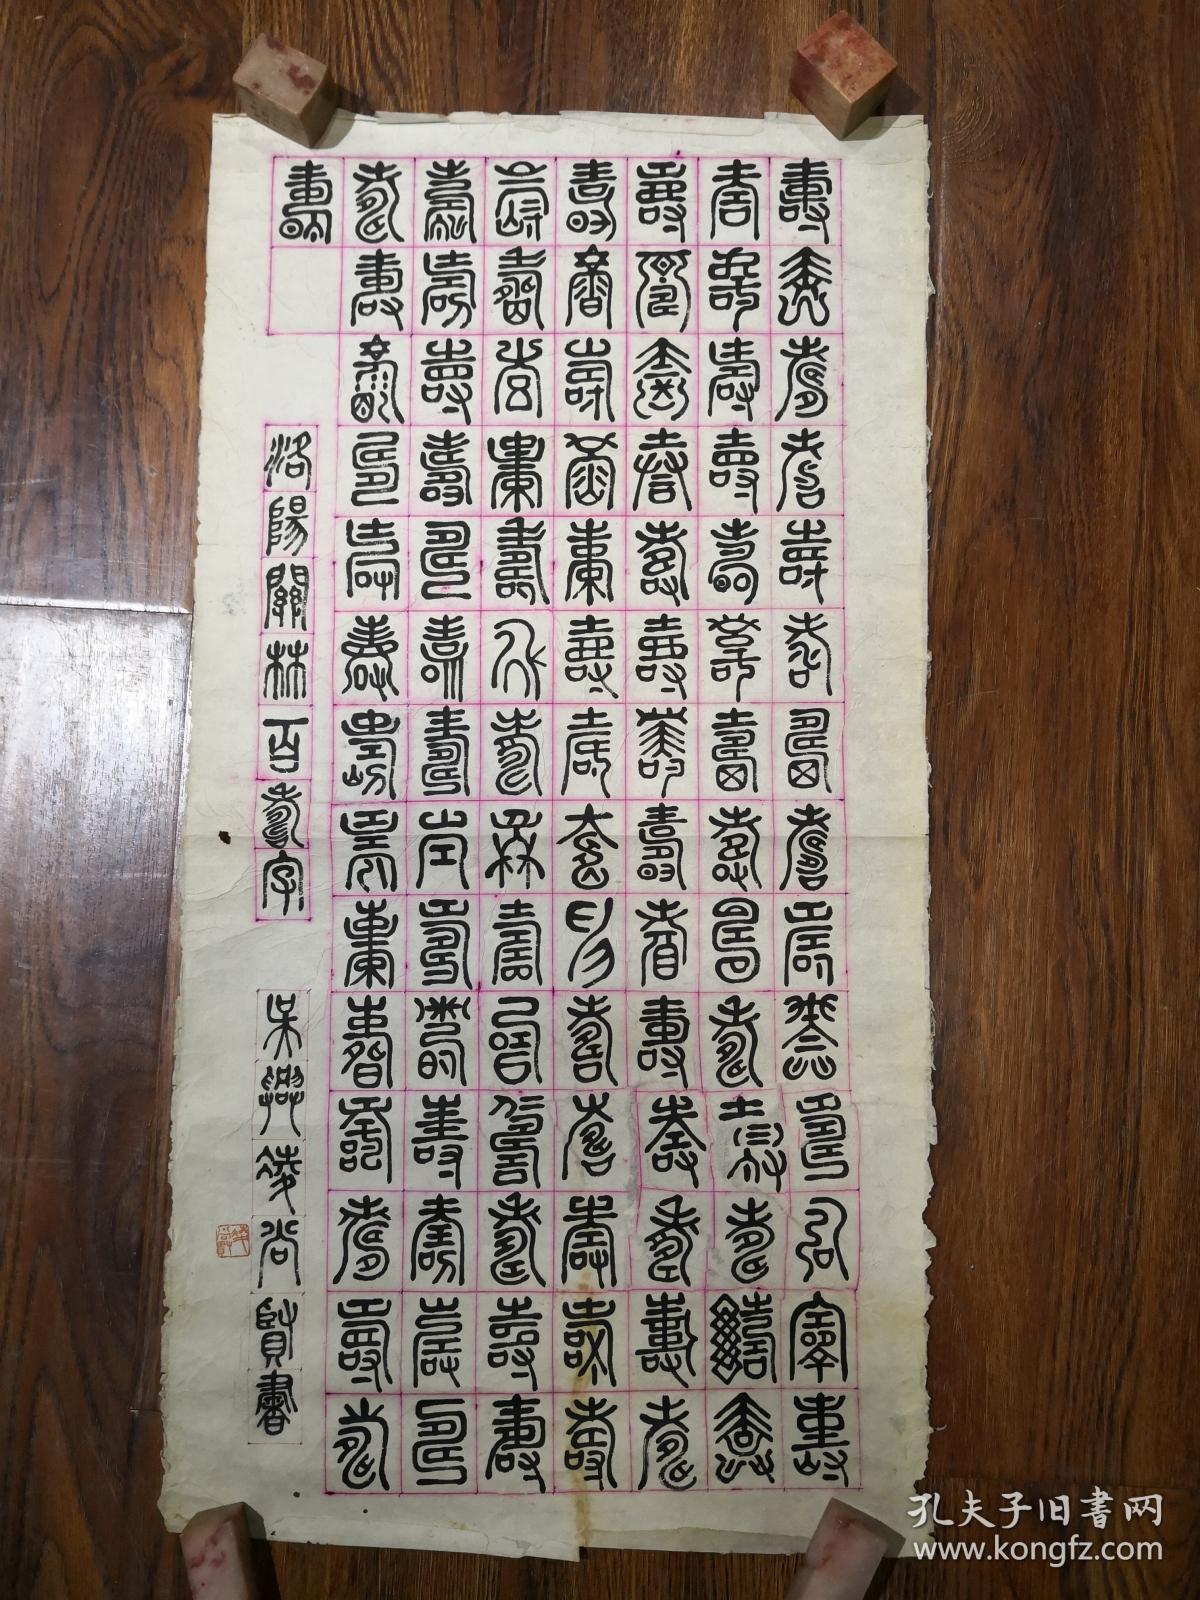 壽壽壽壽壽壽壽壽壽壽壽壽壽壽
壽壽壽壽壽壽壽壽壽壽壽壽壽壽
壽壽壽壽壽壽壽壽壽壽壽壽壽壽
壽壽壽壽壽壽壽壽壽壽壽壽壽壽
壽壽壽壽壽壽壽壽壽壽壽壽壽壽
壽壽壽壽壽壽壽壽壽壽壽壽壽壽
壽壽壽壽壽壽壽壽壽壽壽壽壽壽
壽
洛陽關林百壽字
吳興凌尚賢書
孔夫子旧書网
www.kongfz.com